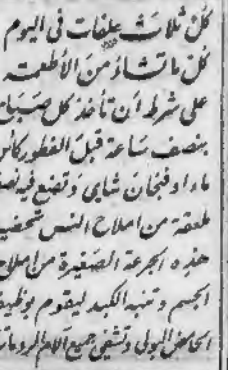 كل ثلاث علفات في اليوم
كل ما تشاء من الأطعمة
على شرط ان تأخذ كل صباح
بنصف ساعة قبل الفطور كأس
ماء او فنجان شاي وتضع فيه نصف
ملعقة من املاح
هذه الجرعة الصغيرة من املاح
الجسم وتنبه الكبد ليقوم بوظيف
الحامض البولي وتشفي جميع آلام الروما